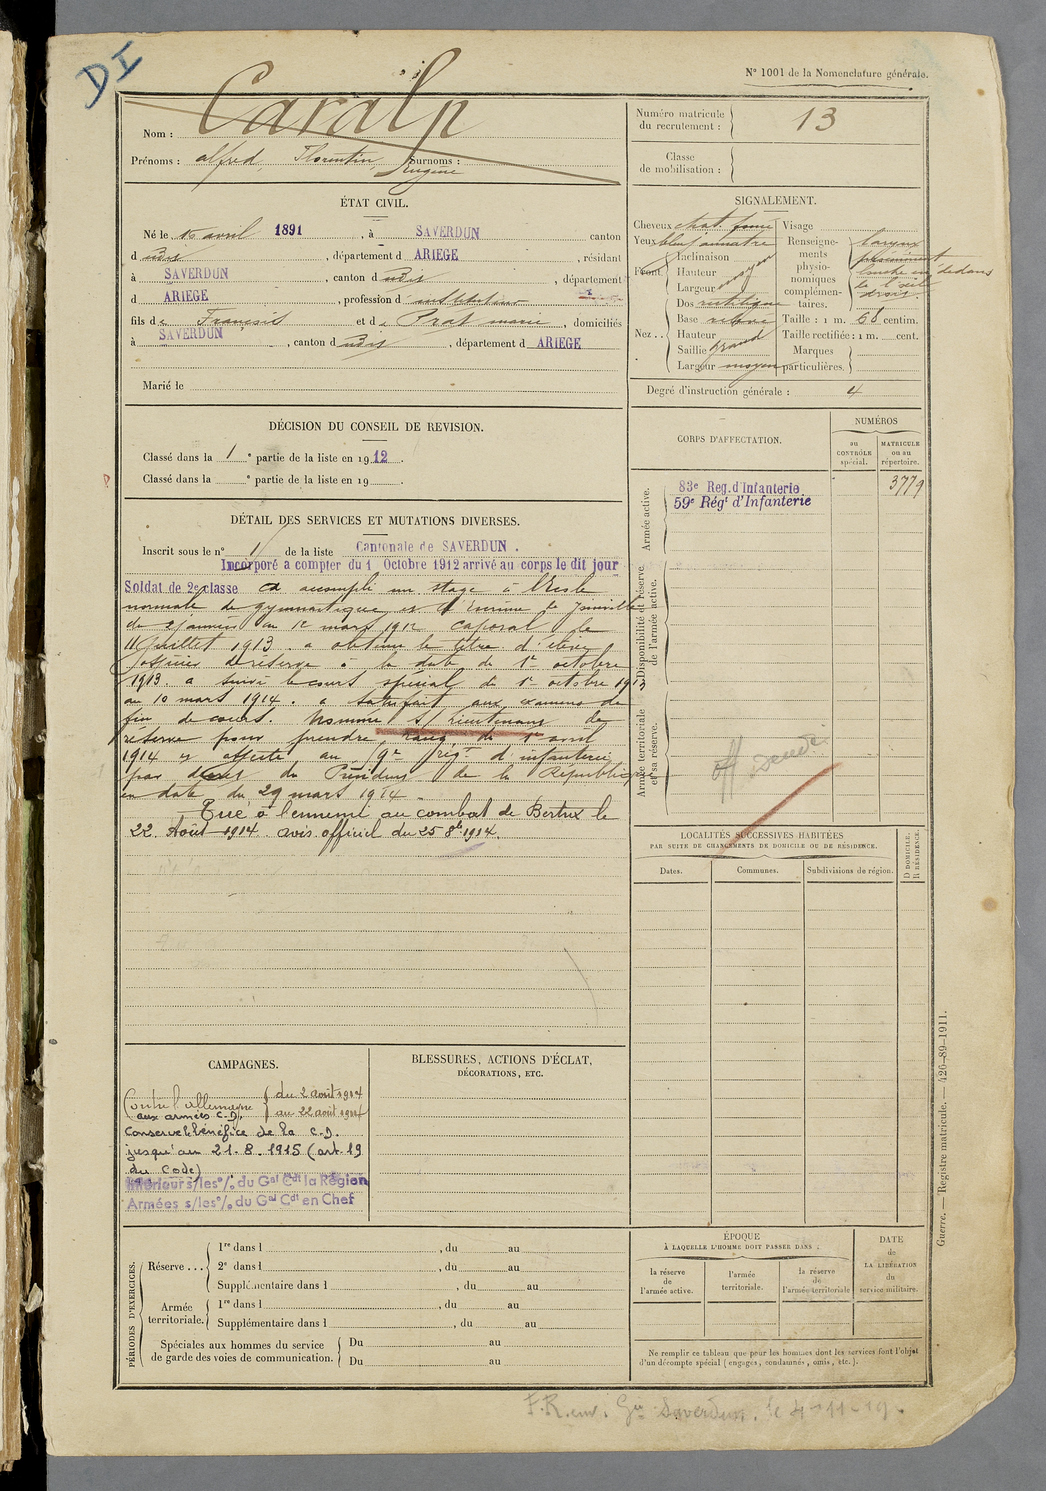 DI
N° 1001 de la Nomenclature générale.
Nom : Caralp
Prénoms : alfred, Florentin, Eugène Surnoms :
Numéro matricule du recrutement : 13
Classe de mobilisation :
ÉTAT CIVIL.
Né le avril 1891, à SAVERDUN canton
d udis, département d ARIEGE, résidant
à SAVERDUN, canton d udis, département
d ARIEGE, profession d instituteur
fils de François et de Prat marie, domiciliés
à SAVERDUN, canton d udis, département d ARIEGE
Marié le
SIGNALEMENT.
Cheveux chat. foncé Visage
Yeux bleu Renseignements physionomiques complémentaires.
Front Inclinaison
Hauteur moyen
Largeur
larynx proéminent
louche en dedans
de l'œil droit.
Nez Dos rectiligne
Base
Hauteur grand
Saillie
Largeur moyen
Taille : 1 m. 68 centim.
Taille rectifiée : 1 m. cent.
Marques particulières.
Degré d'instruction générale : 4
DÉCISION DU CONSEIL DE REVISION.
Classé dans la 1e partie de la liste en 1912.
Classé dans la e partie de la liste en 19 .
CORPS D'AFFECTATION.
NUMÉROS
au CONTRÔLE spécial.
MATRICULE ou au répertoire.
Armée active.
83e Reg. d'Infanterie 3779
59e Régt d'Infanterie
Disponibilité et réserve de l'armée active.
Armée territoriale et sa réserve.
DÉTAIL DES SERVICES ET MUTATIONS DIVERSES.
Inscrit sous le n° 1 de la liste Cantonale de SAVERDUN.
Incorporé a compter du 1 Octobre 1912 arrivé au corps le dit jour
Soldat de 2e classe a accompli un stage à l'école
normale de gymnastique et d'escrime de Joinville
du 21 janvier au 12 mars 1912 Caporal le
11 Juillet 1913. a obtenu le titre d'élève
officier de réserve à la date du 1er octobre
1913. a suivi le cours spécial du 1er octobre 1913
au 10 mars 1914. a satisfait aux examens de
fin de cours. Nommé s/ lieutenant de
réserve pour prendre rang du 1er avril
1914 et affecté au 9e régt d'infanterie
par décret du Président de la République
en date du 29 mars 1914.
Tué à l'ennemi au combat de Bertrix le
22 Août 1914. avis officiel du 25 8bre 1914.
LOCALITÉS SUCCESSIVES HABITÉES
PAR SUITE DE CHANGEMENTS DE DOMICILE OU DE RÉSIDENCE.
Dates.
Communes.
Subdivisions de région.
D DOMICILE.
R RÉSIDENCE.
CAMPAGNES.
Contre l'allemagne du 2 août 1914
aux armées C.D. au 22 août 1914
Conserve le bénéfice de la C.D.
jusqu'au 21.8.1915 (art. 19
du Code)
Intérieur s/les o/o du Gal Cdt la Région
Armées s/les o/o du Gal Cdt en Chef
BLESSURES, ACTIONS D'ÉCLAT,
DÉCORATIONS, ETC.
PÉRIODES D'EXERCICES.
Réserve... 1re dans l , du au
2e dans l , du au
Supplémentaire dans l , du au
Armée territoriale. 1re dans l , du au
Supplémentaire dans l , du au
Spéciales aux hommes du service de garde des voies de communication. Du au
Du au
ÉPOQUE
À LAQUELLE L'HOMME DOIT PASSER DANS :
la réserve de l'armée active.
l'armée territoriale.
la réserve de l'armée territoriale
DATE de LA LIBÉRATION du service militaire.
Ne remplir ce tableau que pour les hommes dont les services font l'objet
d'un décompte spécial (engagés, condamnés, omis, etc.).
Guerre. — Registre matricule. — 426-89-1911.
F.R. env. Gie Saverdun. le 4-11-19